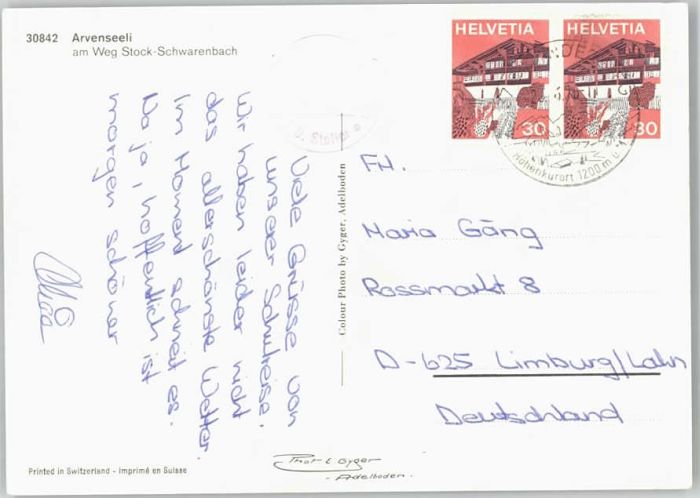 30842 Arvenseeli
am Weg Stock-Schwarenbach
HELVETIA
HELVETIA
30
30
Höhenkurort 1200 m ü. M
Viele Grüsse von
unserer Schulreise.
Wir haben leider nicht
das allerschönste Wetter.
Im Moment schneit es.
Na ja, hoffentlich ist
morgen schöner
Colour Photo by Gyger, Adelboden
Maria Gäng
Rossmarkt 8
D-625 Limburg/Lahn
Deutschland
Printed in Switzerland - Imprimé en Suisse
Phot E. Gyger
- Adelboden.